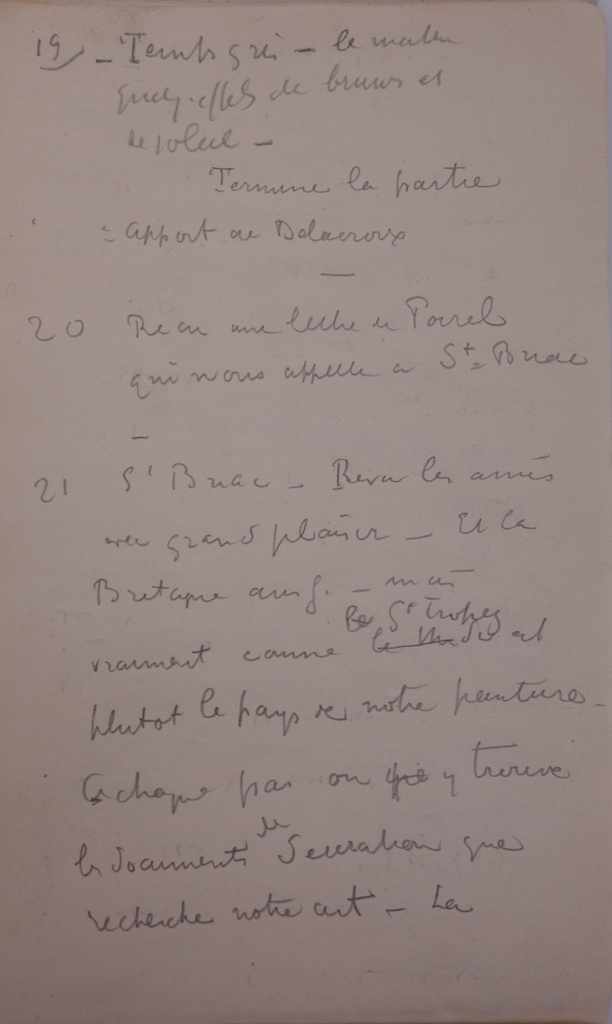 19 - Temps gris - le matin
quelq. effets de brumes et
de soleil -
Termine la partie
= Apport de Delacroix
—
20 Reçu une lettre de
qui nous appelle a St-Briac
—
21 St Briac - Revu les amis
avec grand plaisir - Et la
Bretagne aussi - mais
vraiment comme St Tropez est
plutot le pays de notre peinture -
A chaque pas on y trouve
les documents de que
recherche notre art - La